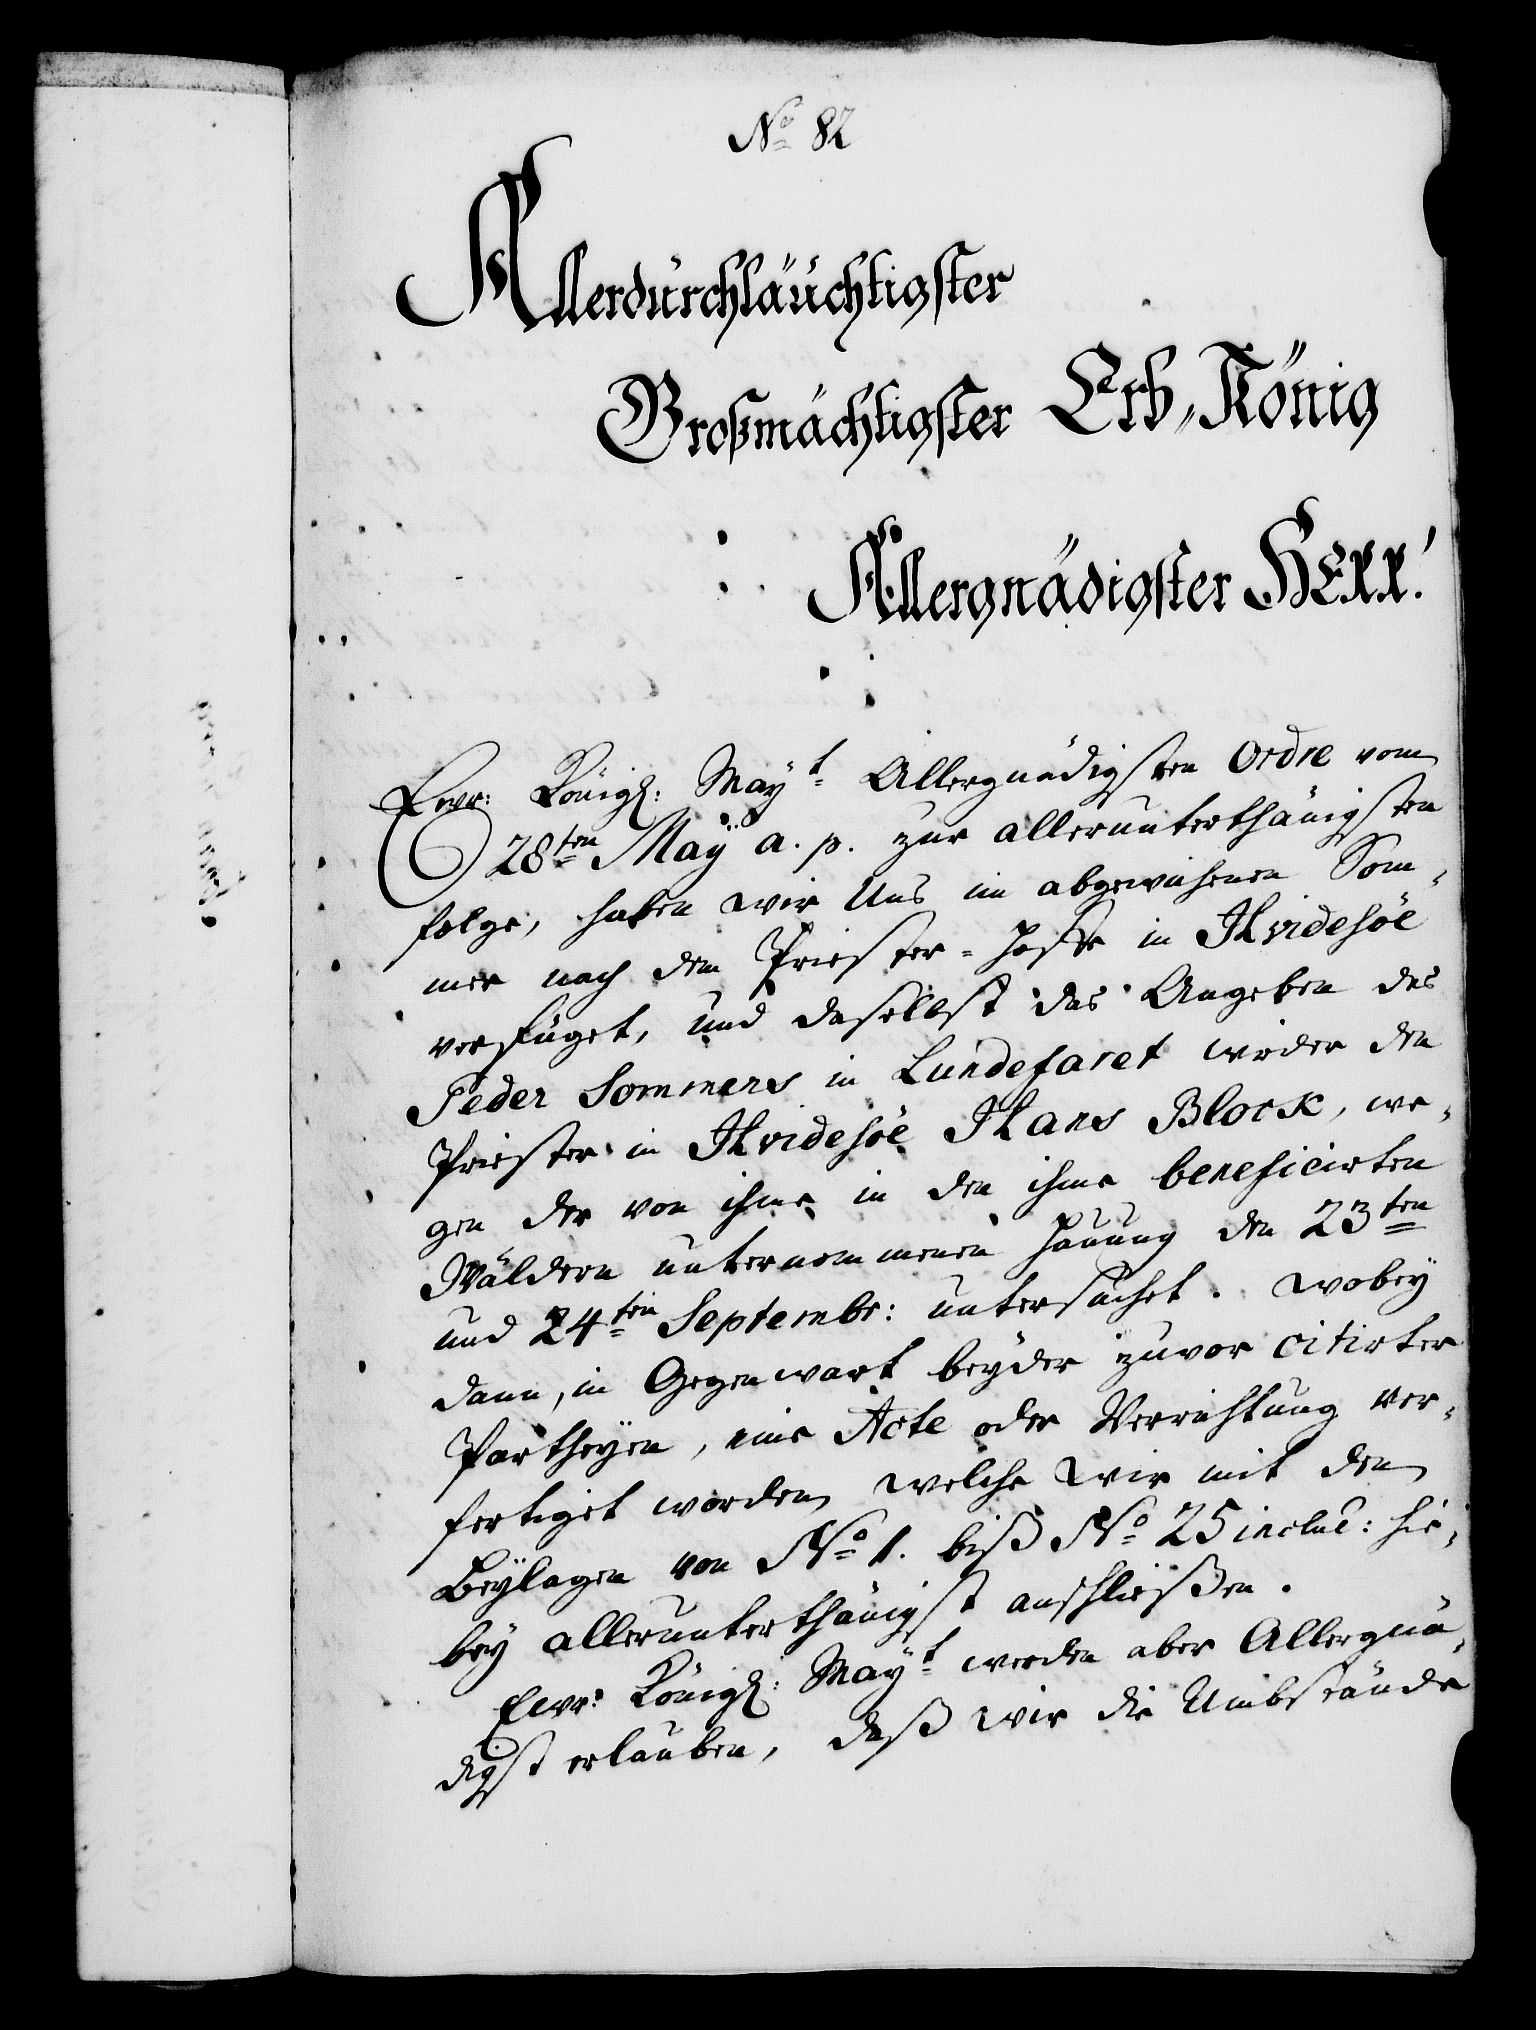 No 82
Allerdurchläuchtigster
Großmächtigster Erb-König
Allergnädigster HErr!
Ewr: Königl: Mayt Allergnädigsten Ordre vom
28ten Maÿ a. p. zur allerunterthänigsten
folge, haben wir Uns im abgewichenen Som-
mer nach dem Priester-Hoffe in Hvidesöe
verfüget, und daselbst das Angeben des
Peder Sommers in Lundefaret wieder den
Priester in Hvidesöe Hans Block, we-
gen der von ihme in den ihme beneficirten
Wäldern unternommenen Hauung den 23ten
und 24ten Septembr: untersuchet. Wobeÿ
dann, in Gegenwart beÿder zuvor citirter
Partheÿen, eine Acte oder Verrichtung ver-
fertiget worden, welche Wir mit den
Beÿlagen von No 1. biß No 25 inclus: hie-
beÿ allerunterthänigst anschließen.
Ewr: Königl: Mayt werden aber Allergnä-
digst erlauben, daß wir die Umbstände